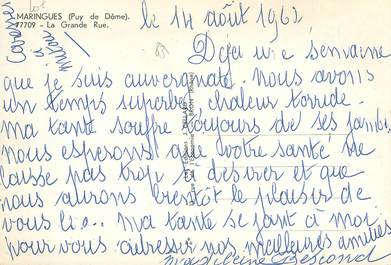 MARINGUES (Puy de Dôme).
77709 - La Grande Rue.
le 14 août 1962
Déja une semaine
que je suis auvergnate. nous avons
un temps superbe, chaleur torride.
ma tante souffre toujours de ses jambes
nous esperons que votre santé ne
laisse pas trop à desirer et que
nous aurons bientôt le plaisir de
vous li... ma tante se joint à moi
pour vous adresser nos meilleures amitiés
Madeleine